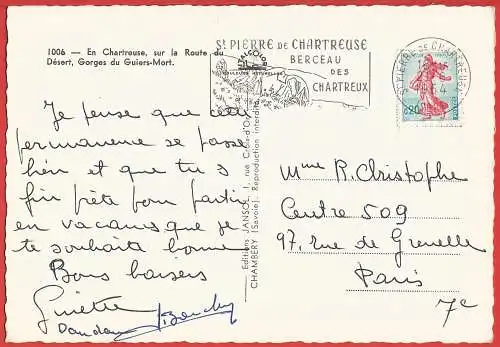 1006 — En Chartreuse, sur la Route du
Désert, Gorges du Guiers-Mort.
St PIERRE DE CHARTREUSE
BERCEAU
DES
CHARTREUX
St PIERRE DE CHARTREUSE
0,20
Je pense que cette
permanence se passe
bien et que tu
fin prête pour partir
en vacances que je
te souhaite bonne
Bons baisers
Ginette
Editions JANSOL, 1, rue Croix-d'Or
CHAMBERY (Savoie). Reproduction interdite.
Mme R. Christophe
Centre 509
97, rue de Grenelle
Paris
7e